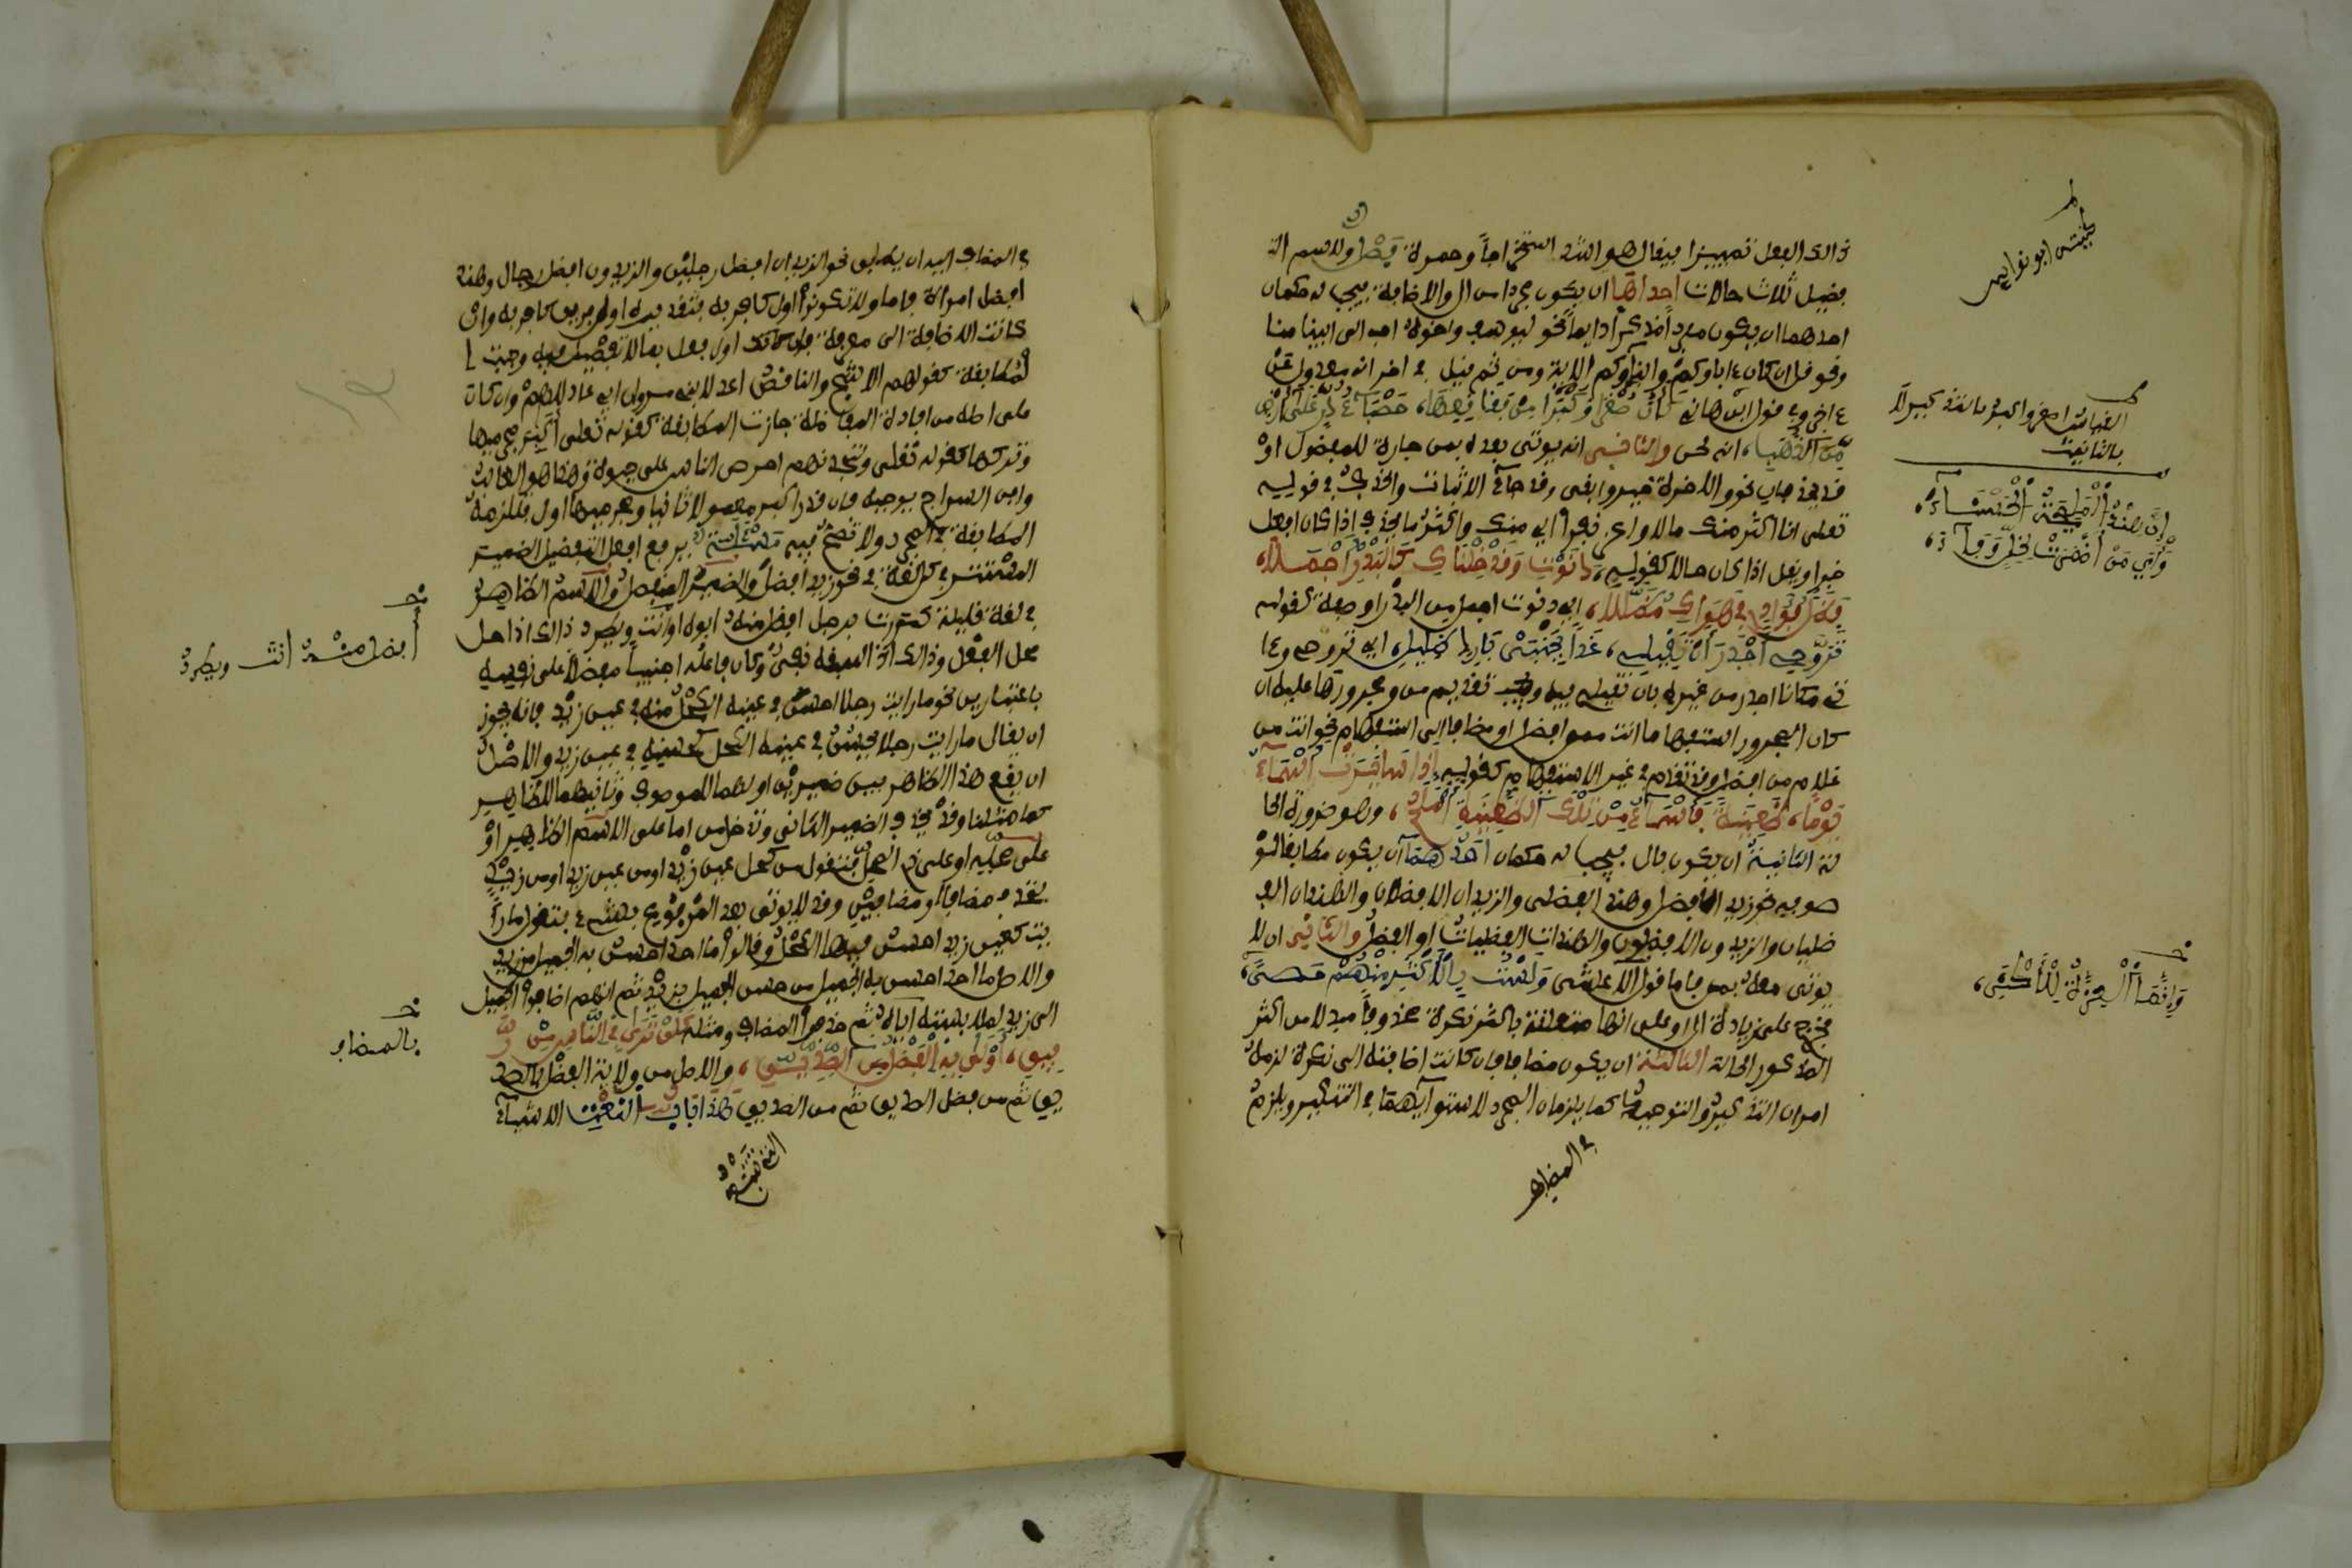 ذالك الفعل تمييزا فيقال هو اشد استخراجاً وحمرة فَصْلٌ ولاسم الت
فضيل ثلاث حالات احداها ان يكون مجردا من ال والاضافة فيجب له حكمان
احدهما ان يكون مفرداً مذكراً دايماً نحو ليوسف واخوه احب الى ابينا منا
ونحو قل ان كان ءاباوكم وابناوكم الاية ومن ثم قيل في اخر انه معدول عن
ءاخر وفي قول ابن هانئ كأن صُغْرَى وَكُبْرَا مِنْ فقاقعِهَا، حَصْبَاءُ دُرٍّ عَلَى أَرْضٍ
مِّنَ الذَّهَبِ، انه لحن والثانـي انه يوتى بعده بمن جارة للمفضول اوْ
قد يحذفان نحو والاخرة خير وابقى وقد جاءَ الاثبات والحذف في قولـه
تعلى انا اكثر منك مالا واعز نفراً اي منك واكثرُ ما يحذف اذا كان افعل
خبرا ويقل اذا كان حالا كقولـه، دَنَوْتِ وَقَدْ خِلْنَاكِ كَالبَدْرِ أَجْمَـلَا،
فَظَلَّ فُؤَادِي فِي هَوَاكِ مُضَلَّلاَ، اي دنوت اجمل من البدر او صفة كقوله
تَرَوَّحِـي أَجْدَرَ أَنْ تَقِيلِي، غَداً بِجَنْبَيْ بَارِدٍ ظَلِيلِ، اي تروحي وءا
تي مكانا اجدر من غيره بان تقيلي فيه ويجب تقديم من ومجرورها عليه ان
كان المجرور استفهاما انت ممن افضل او مضافا الى استفهام نحو انت من
غلام من افضل وقد تتقدم في غير الاستفهام كقوله، إِذَا سَايَرَتْ أَسْمَاءُ
يَوْماً، ظَعِينَةً فَأَسْمَاءُ مِنْ تِلْكَ الظَّعِينَةِ أَمْلَحُ، وهو ضرورة الحا
لة الثانيـة ان يكون بال فيجب له حكمان احَدُهُمَا ان يكون مطابقا لمو
صوفه نحو زيد الافضل وهند الفضلى والزيدان الافضلان والهندان الف
ضليان والزيدون الافضلون والهندات الفضليات او الفضل والثاني ان لا
يوتى معه بمن فاما قول الاعشى وَلَسْتَ بِالْأَكْثَرِ مِنْهُمْ حَصـىً،
فخرج على زيادة ال او على انها متعلقة باكثر نكرة محذوفاً مبدلا من اكثر
المذكور الحالة الثالثـة ان يكون مضافا فان كانت اضافته الى نكرة لزمه
امران التذكير والتوحيد كما يلزمان المجرد لاستوآيهما في التنكير ويلزم
في المضاف
بيت ابو نواس
القياس اصغر واكبر بالتذكير لا
بالتانيث
إِنَّ هِنْدُ الْمَلِيحَةُ الْحَسْنَـاءَ،
وَأْيَ مَنْ أَضْمَرَتْ لِخِلٍّ وَفَـآءَ،
وَإِنَّمَا الْعِزَّةُ لِلْكَاثِرِ،
في المضاف اليه ان يطابق نحو الزيدان افضل رجلين والزيدون افضل رجال وهند
افضل امراة فاما ولا تكونوا اول كافر به فتقديره اول فريق كافر به وان
كانت الاضافة الى معرفة فان اول افعل بما لا تفضيل فيه وجبت ا
لمطابقة كقولهم الاشج والناقص اعدلا بني مروان اي عادلاهم وان كان
على اصله من افادة المفاضلة جازت المطابقة كقوله تعلى أكابر مجرميها
وتركها كقوله تعلى ولتجدنهم احرص الناس على حيوة وهذا هو الغالب
وابن السراج يوجبه فان قدر اكبر مفعولا ثانيا ومجرميها اول فيلزمه
المطابقة في المجرد ولا تصح فيه مَسْئَلَة يرفع افعل التفضيل الضمير
المستتر في كل لغة في نحو زيد افضل والضمير المنفصل والاسم الظاهر
في لغة قليلة كمررت برجل افضل منه ابوه او انت ويطرد ذالك اذا حل
محل الفعل وذالك اذا سبقه نفي وكان فاعله اجنبياً مفضلا على نفسه
باعتبارين نحو ما رايت رجلا احسن في عينه الكحل منه في عين زيد فانه يجوز
ان يقال ما رايت رجلا يحسن في عينه الكحل كحسنه في عين زيد والاصل
ان يقع هذا الظاهر بين ضميرين اولهما للموصوف وثانيهما للظاهر
كما مثلنا وقد يحذف الضمير الثاني وتدخل من اما على الاسم الظاهر اوْ
على محله او على ذي المحل فتقول من كحل عين زيد او من عين زيد او من زيد
فتحذف مضافا او مضافين وقد لا يوتى بعد المرفوع بشيء فتقول ما را
يت كعين زيد احسن فيها الكحل وقالوا ما احد احسن به الجميل من زيد
والاصل ما احد احسن به الجميل من حسن الجميل بزيد ثم انهم اضافوا الجميل
الى زيد لملابسته اياه ثم حذفوا المضاف ومثله لَنْ تَرَى فِي النَّاسِ مِنْ رَّ
فِيقٍ، أَوْلَى بِهِ الْفَضْلُ مِنَ الصِّدِّيـقِ، والاصل من ولاية الفضل بالصد
يق ثم من فضل الصديق ثم من الصديق هذا بَاب النَّعْتِ الاشياءُ
التي تتبع
أفضل منـه أنت ويطرد
بالمضاف